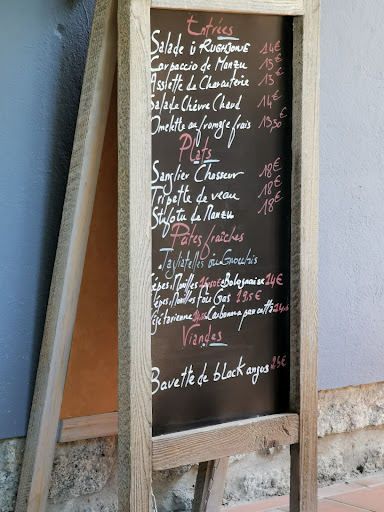 Entrées
Salade U RUGHJONE 14€
Carpaccio de Manzu 15€
Assiette de Charcuterie 15€
Salade Chèvre Chaud 14€
Omelette au fromage frais 13,50€
Plats
Sanglier Chasseur 18€
Tripette de veau 18€
Stufatu de Manzu 18€
Pâtes fraîches
Tagliatelles ou Gnocchis
Cèpes, Morilles Bolognaise 14€
Cèpes, Morilles foie Gras 19,5€
Végétarienne Carbonara
Viandes
Bavette de black angus 25€